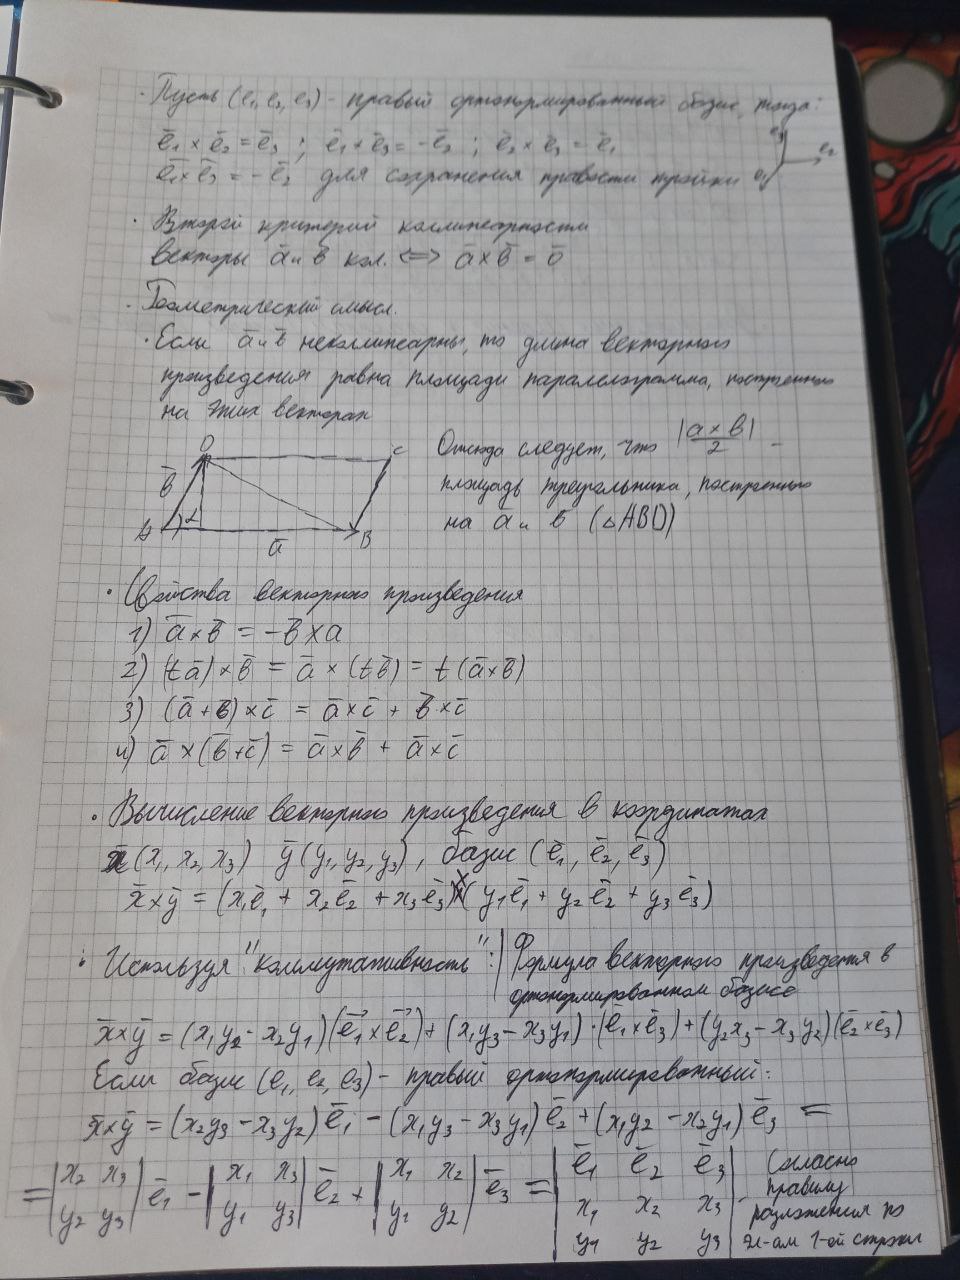 · Пусть (e₁ e₂, e₃) - правый ортонормированный базис, тогда:
ē₁ × ē₂ = ē₃ ; ē₁ × ē₃ = -ē₂ ; ē₂ × ē₃ = ē₁
e₃
e₂
e₁
ē₁×ē₃ = -ē₂ для сохранения правости тройки
· Второй критерий коллинеарности
векторы ā и b̄ кол. <=> ā×b̄ = 0̄
· Геометрический смысл.
· Если ā и b̄ неколлинеарны, то длина векторного
произведения равна площади параллелограмма, построенного
на этих векторах
D C
b̄
A α B
ā
Отсюда следует, что |a×b|/2 -
площадь треугольника, построенного
на ā и b̄ (△ABD)
· Свойства векторного произведения
1) ā×b̄ = -b̄×a
2) (tā)×b̄ = ā×(tb̄) = t(ā×b̄)
3) (ā+b̄)×c̄ = ā×c̄ + b̄×c̄
4) ā×(b̄+c̄) = ā×b̄ + ā×c̄
· Вычисление векторного произведения в координатах
x̄(x₁, x₂, x₃) ȳ(y₁, y₂, y₃), базис (ē₁, ē₂, ē₃)
x̄×ȳ = (x₁ē₁ + x₂ē₂ + x₃ē₃)×(y₁ē₁ + y₂ē₂ + y₃ē₃)
· Используя "коммутативность": | Формула векторного произведения в
ортонормированном базисе
x̄×ȳ = (x₁y₂ - x₂y₁)(ē₁×ē₂) + (x₁y₃ - x₃y₁)·(ē₁×ē₃) + (y₂x₃ - x₃y₂)(ē₂×ē₃)
Если базис (e₁, e₂, e₃) - правый ортонормированный:
x̄×ȳ = (x₂y₃ - x₃y₂)ē₁ - (x₁y₃ - x₃y₁)ē₂ + (x₁y₂ - x₂y₁)ē₃ =
= |x₂ x₃| ē₁ - |x₁ x₃| ē₂ + |x₁ x₂| ē₃ = |ē₁ ē₂ ē₃|
|y₂ y₃| |y₁ y₃| |y₁ y₂| |x₁ x₂ x₃|
|y₁ y₂ y₃|
Согласно
правилу
разложения по
эл-ам 1-ой строки